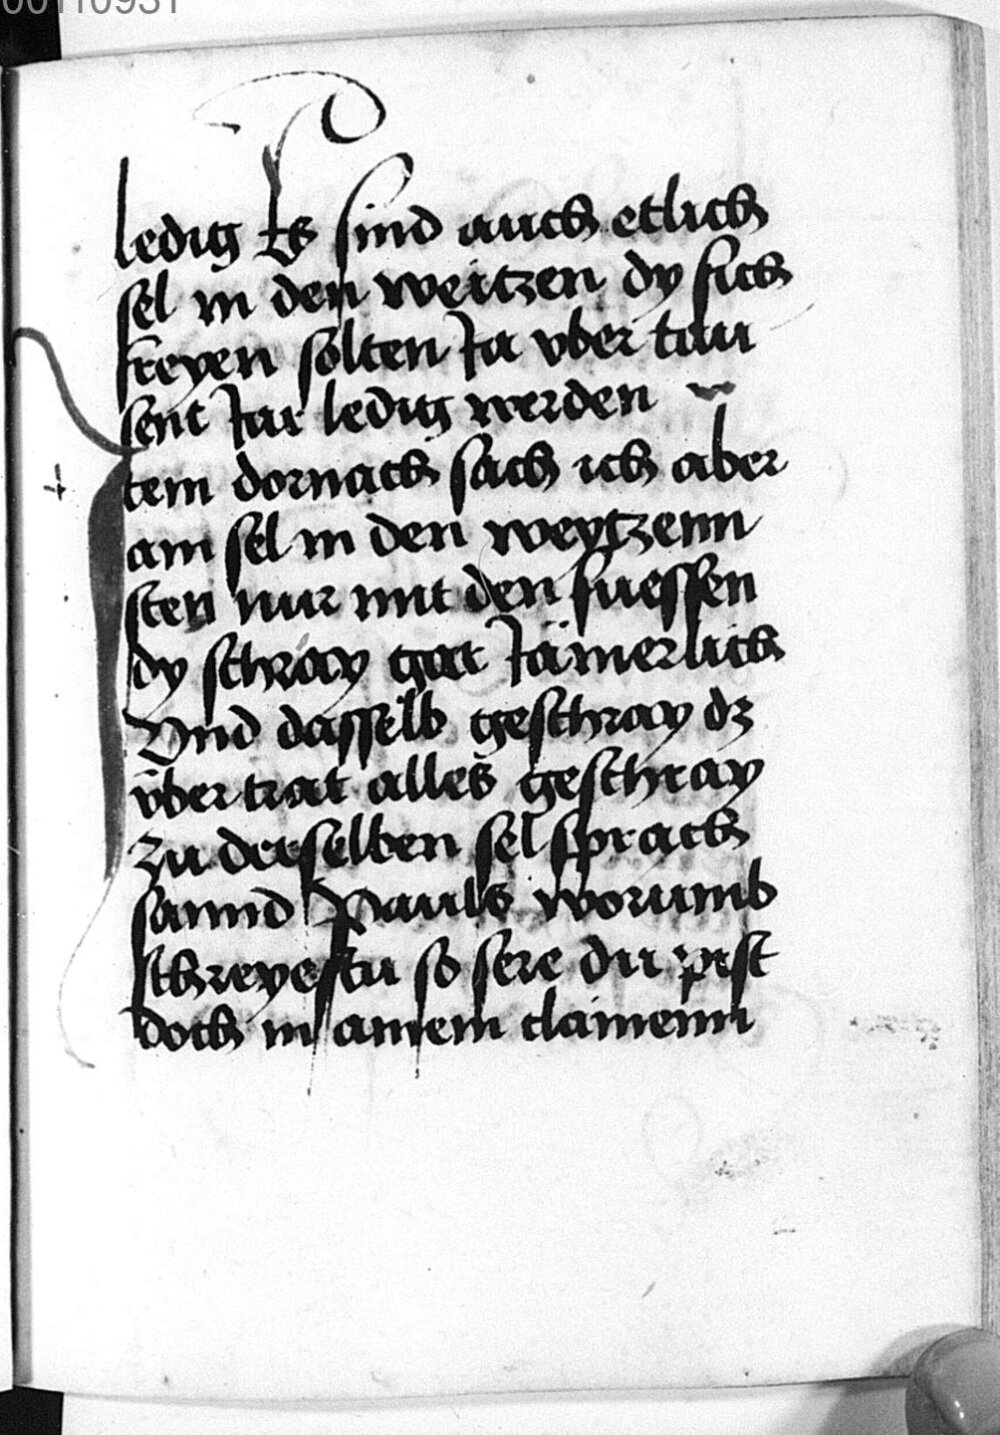 00110931
ledig Es sind auch etlich
sel in den weitzen dy sich
freyen solten Ja vber tau
sent Jar ledig werden
Item dornach sach ich aber
ain sel in den weytzenn
sten nur mit den fuessen
dy schray gar Jämerlich
Vnd dasselb geschray dz
vbertrat alles geschray
Zu derselben sel sprach
sannd Pauls worumb
schreyestu so sere du pist
doch in ainem clainenn